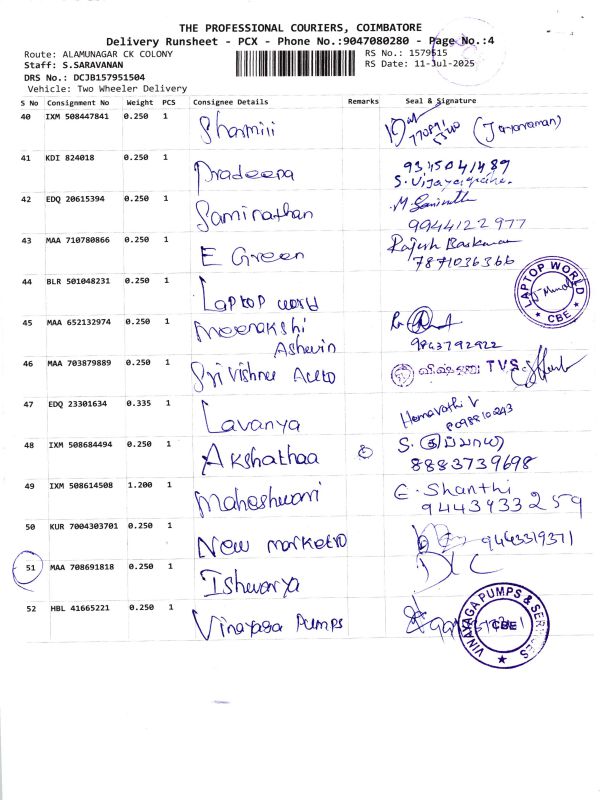 THE PROFESSIONAL COURIERS, COIMBATORE
Delivery Runsheet - PCX - Phone No.:9047080280 - Page No.:4
Route: ALAMUNAGAR CK COLONY
RS No.: 1579515
Staff: S.SARAVANAN
RS Date: 11-Jul-2025
DRS No.: DCJB157951504
Vehicle: Two Wheeler Delivery
S No Consignment No Weight PCS Consignee Details Remarks Seal & Signature
40 IXM 508447841 0.250 1 Sharmili (Jayaraman)
41 KDI 824018 0.250 1 Pradeepa 9345041489
42 EDQ 20615394 0.250 1 Saminathan 9944122977
43 MAA 710780866 0.250 1 E Green Rajesh Baskaran
7871036366
44 BLR 501048231 0.250 1 Laptop world LAPTOP WORLD CBE
45 MAA 652132974 0.250 1 Meenakshi
Ashwin 9843792922
46 MAA 703879889 0.250 1 Sri Vishnu Auto TVS
47 EDQ 23301634 0.335 1 Lavanya Hemavathi V
48 IXM 508684494 0.250 1 Akshathaa S.
8883739698
49 IXM 508614508 1.200 1 Maheshwari E. Shanthi
9443933259
50 KUR 7004303701 0.250 1 New marketro 9443319371
51 MAA 708691818 0.250 1 Ishwarya DLC
52 HBL 41665221 0.250 1 Vinayaga Pumps VINAYAGA PUMPS & SERVICES CBE